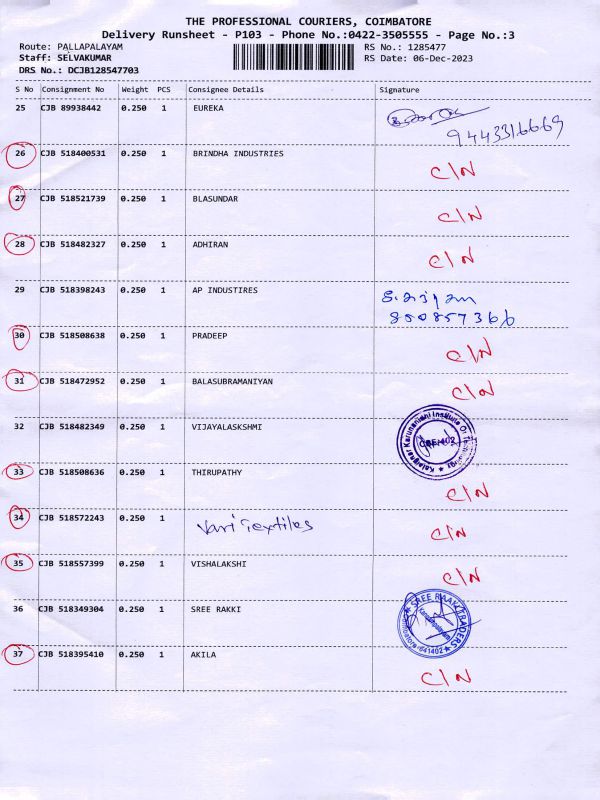 THE PROFESSIONAL COURIERS, COIMBATORE
Delivery Runsheet - P103 - Phone No.:0422-3505555 - Page No.:3
Route: PALLAPALAYAM RS No.: 1285477
Staff: SELVAKUMAR RS Date: 06-Dec-2023
DRS No.: DCJB128547703
S No Consignment No Weight PCS Consignee Details Signature
25 CJB 89938442 0.250 1 EUREKA
9443316669
26 CJB 518400531 0.250 1 BRINDHA INDUSTRIES C/N
27 CJB 518521739 0.250 1 BLASUNDAR C/N
28 CJB 518482327 0.250 1 ADHIRAN C/N
29 CJB 518398243 0.250 1 AP INDUSTIRES
850857366
30 CJB 518508638 0.250 1 PRADEEP C/N
31 CJB 518472952 0.250 1 BALASUBRAMANIYAN C/N
32 CJB 518482349 0.250 1 VIJAYALASKSHMI Kalaignar Karunanidhi Institute Of Technology
33 CJB 518508636 0.250 1 THIRUPATHY C/N
34 CJB 518572243 0.250 1 Vari Textiles C/N
35 CJB 518557399 0.250 1 VISHALAKSHI C/N
36 CJB 518349304 0.250 1 SREE RAKKI SREE TRADERS 641402
37 CJB 518395410 0.250 1 AKILA C/N